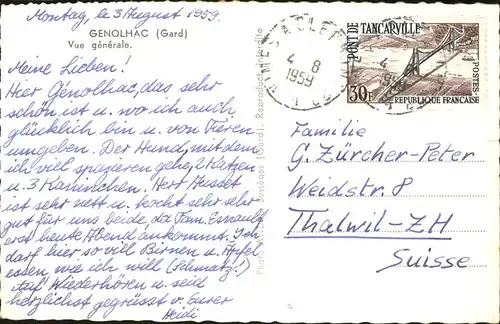 Montag, le 3 August 1959.
GENOLHAC (Gard)
Vue générale.
Meine Lieben!
Hier Génolhac, das sehr
schön ist u. wo ich auch
glücklich bin u. von Tieren
umgeben. Der Hund, mit dem
ich viel spazieren gehe, 2 Katzen
u. 3 Kaninchen. Herr
ist sehr nett u. kocht sehr sehr
gut für uns beide da Fam.
erst heute Abend ankommt. Ich
darf hier so viel Birnen u. Äpfel
essen, wie ich will (Schmatz!)
Auf Wiederhören u. seid
herzlichst gegrüsst v. Eurer
Heidi
(Gard). Reproduction interdite
4 - 8
1959
PONT DE TANCARVILLE
30F
POSTES
REPUBLIQUE FRANCAISE
Familie
G. Zürcher-Peter
Weidstr. 8
Thalwil-ZH
Suisse